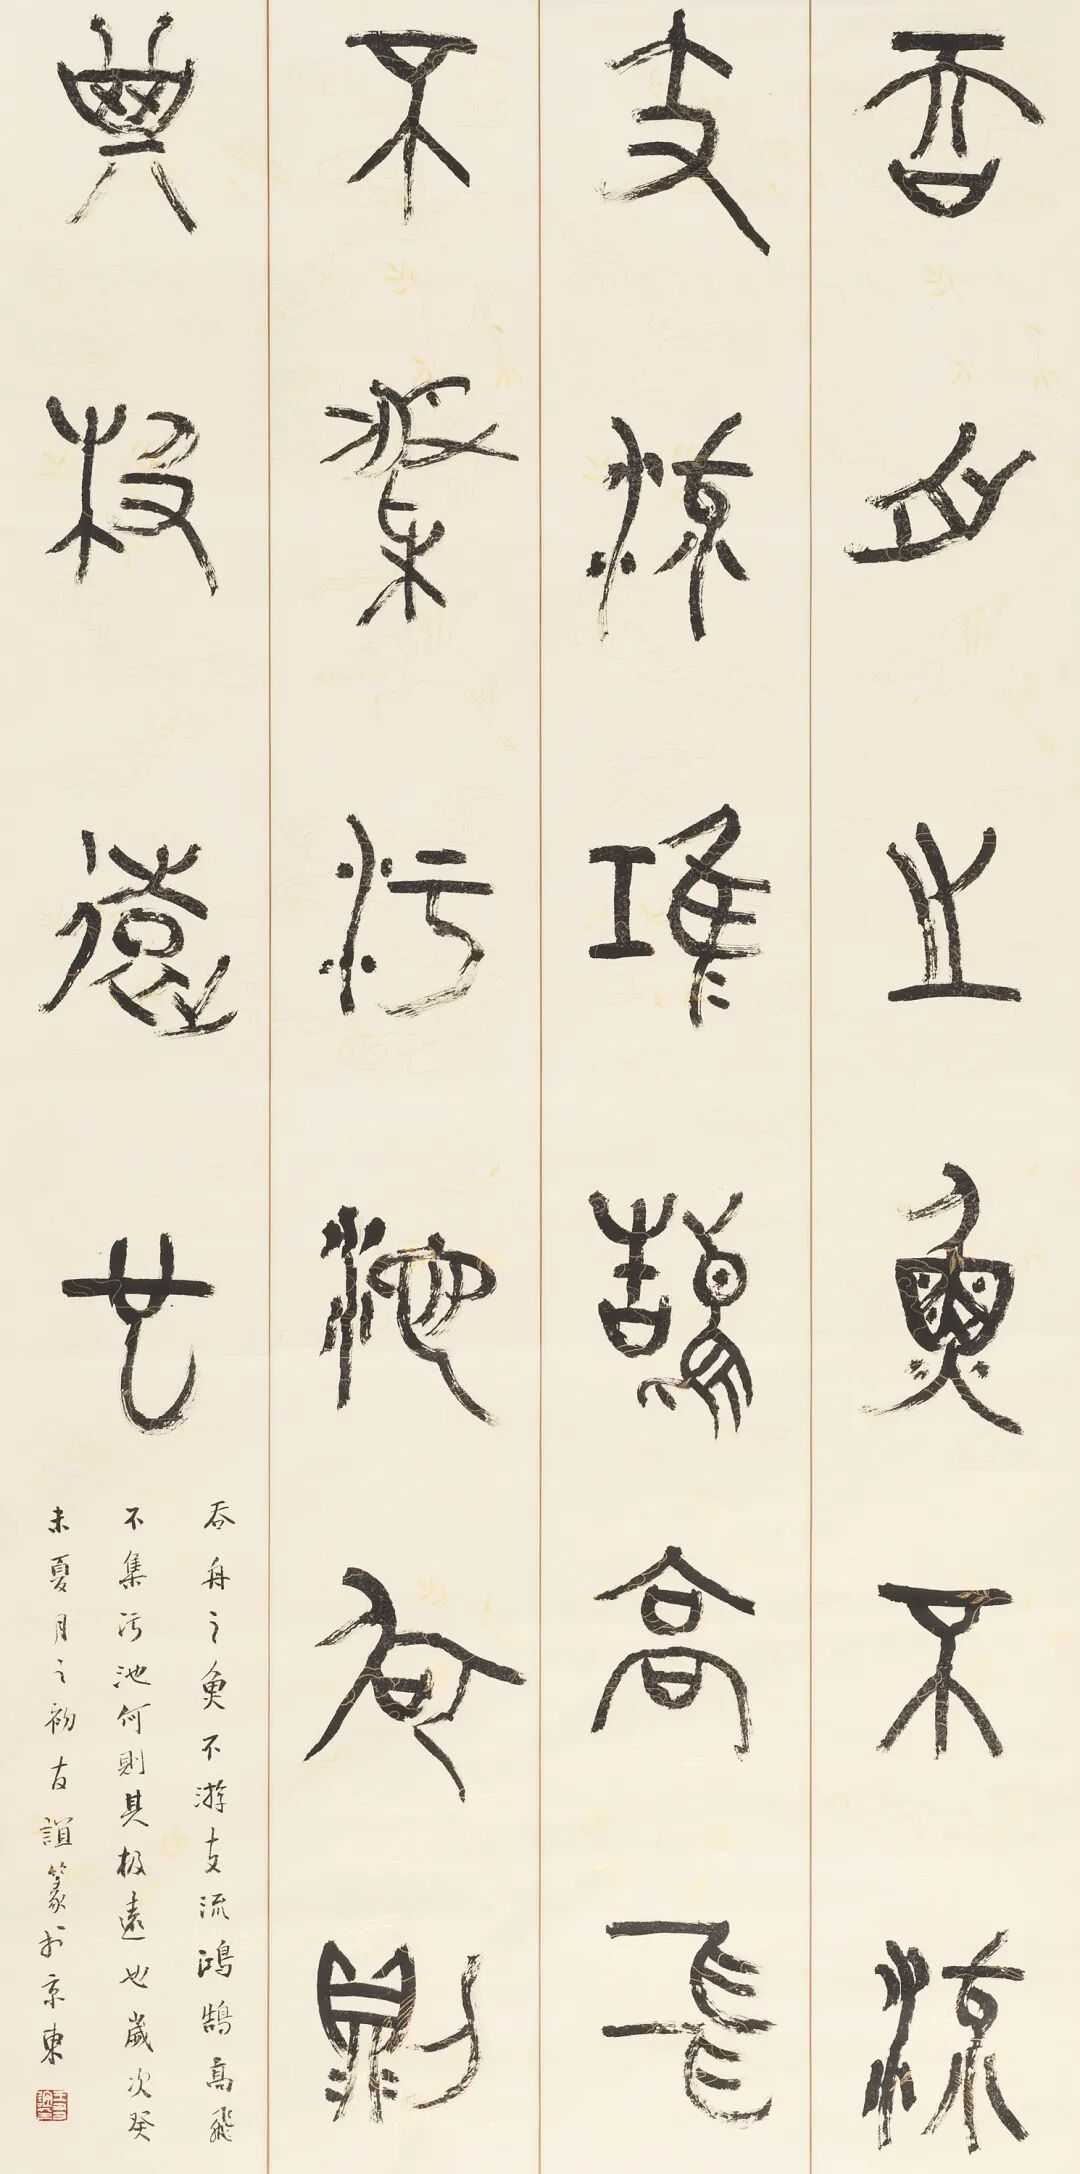 吞舟之魚不游
支流鴻鵠高飛
不集污池何則
其极遠也
吞舟之魚不游支流鴻鵠高飛
不集污池何則其极遠也歲次癸
未夏月之初友誼篆於京東